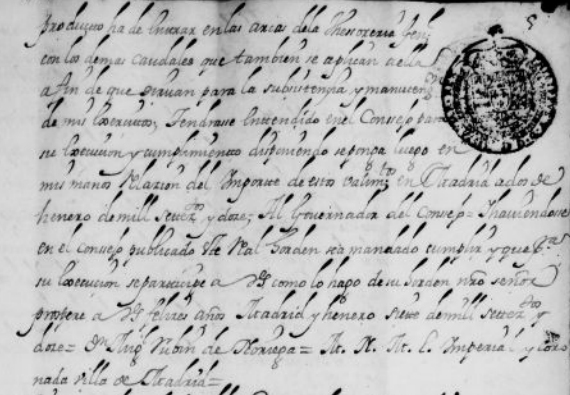 producto ha de entrar en las arcas dela Thesoreria Genl
con los demas caudales que tambien se aplican a ella
a fin de que sirvan para la subsistenzia y manuten
de mis exercitos; Tendrase Enttendido en el Consejo para
su execucion y cumplimiento disponiendo se ponga luego en
mis manos Relazion del Importe de estos valimtos en Madrid a dos de
henero de mill settetos y doze; Al Governador del Consejo = Ihaviendose
en el consejo publicado Rl horden se a mandado cumplir y que Pra
su execucion se partizipe a VS como lo hago de su horden nro señor
prospere a VS felizes años Madrid y henero siete de mill settetos y
doze = Dn Luis Rubin de Noriega = M. N. M. L. Imperial y coro
nada villa de Madrid =